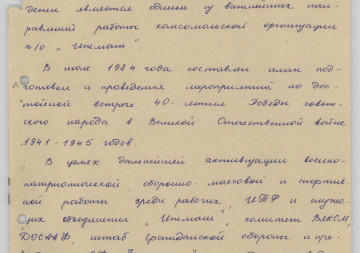 дение является одним из важнейших нап-
равлений работы комсомольской организации
п/о „Ижмаш"
В июле 1984 года составлен план под-
готовки и проведения мероприятий по дос-
тойной встрече 40-летия Победы совет-
ского народа в Великой Отечественной войне
1941-1945 годов.
В целях дальнейшей активизации военно-
патриотической оборонно-массовой и спортив-
ной работы среди рабочих, ИТР и служа-
щих объединения „Ижмаш", комитет ВЛКСМ,
ДОСААФ, штаб Гражданской обороны и пре-